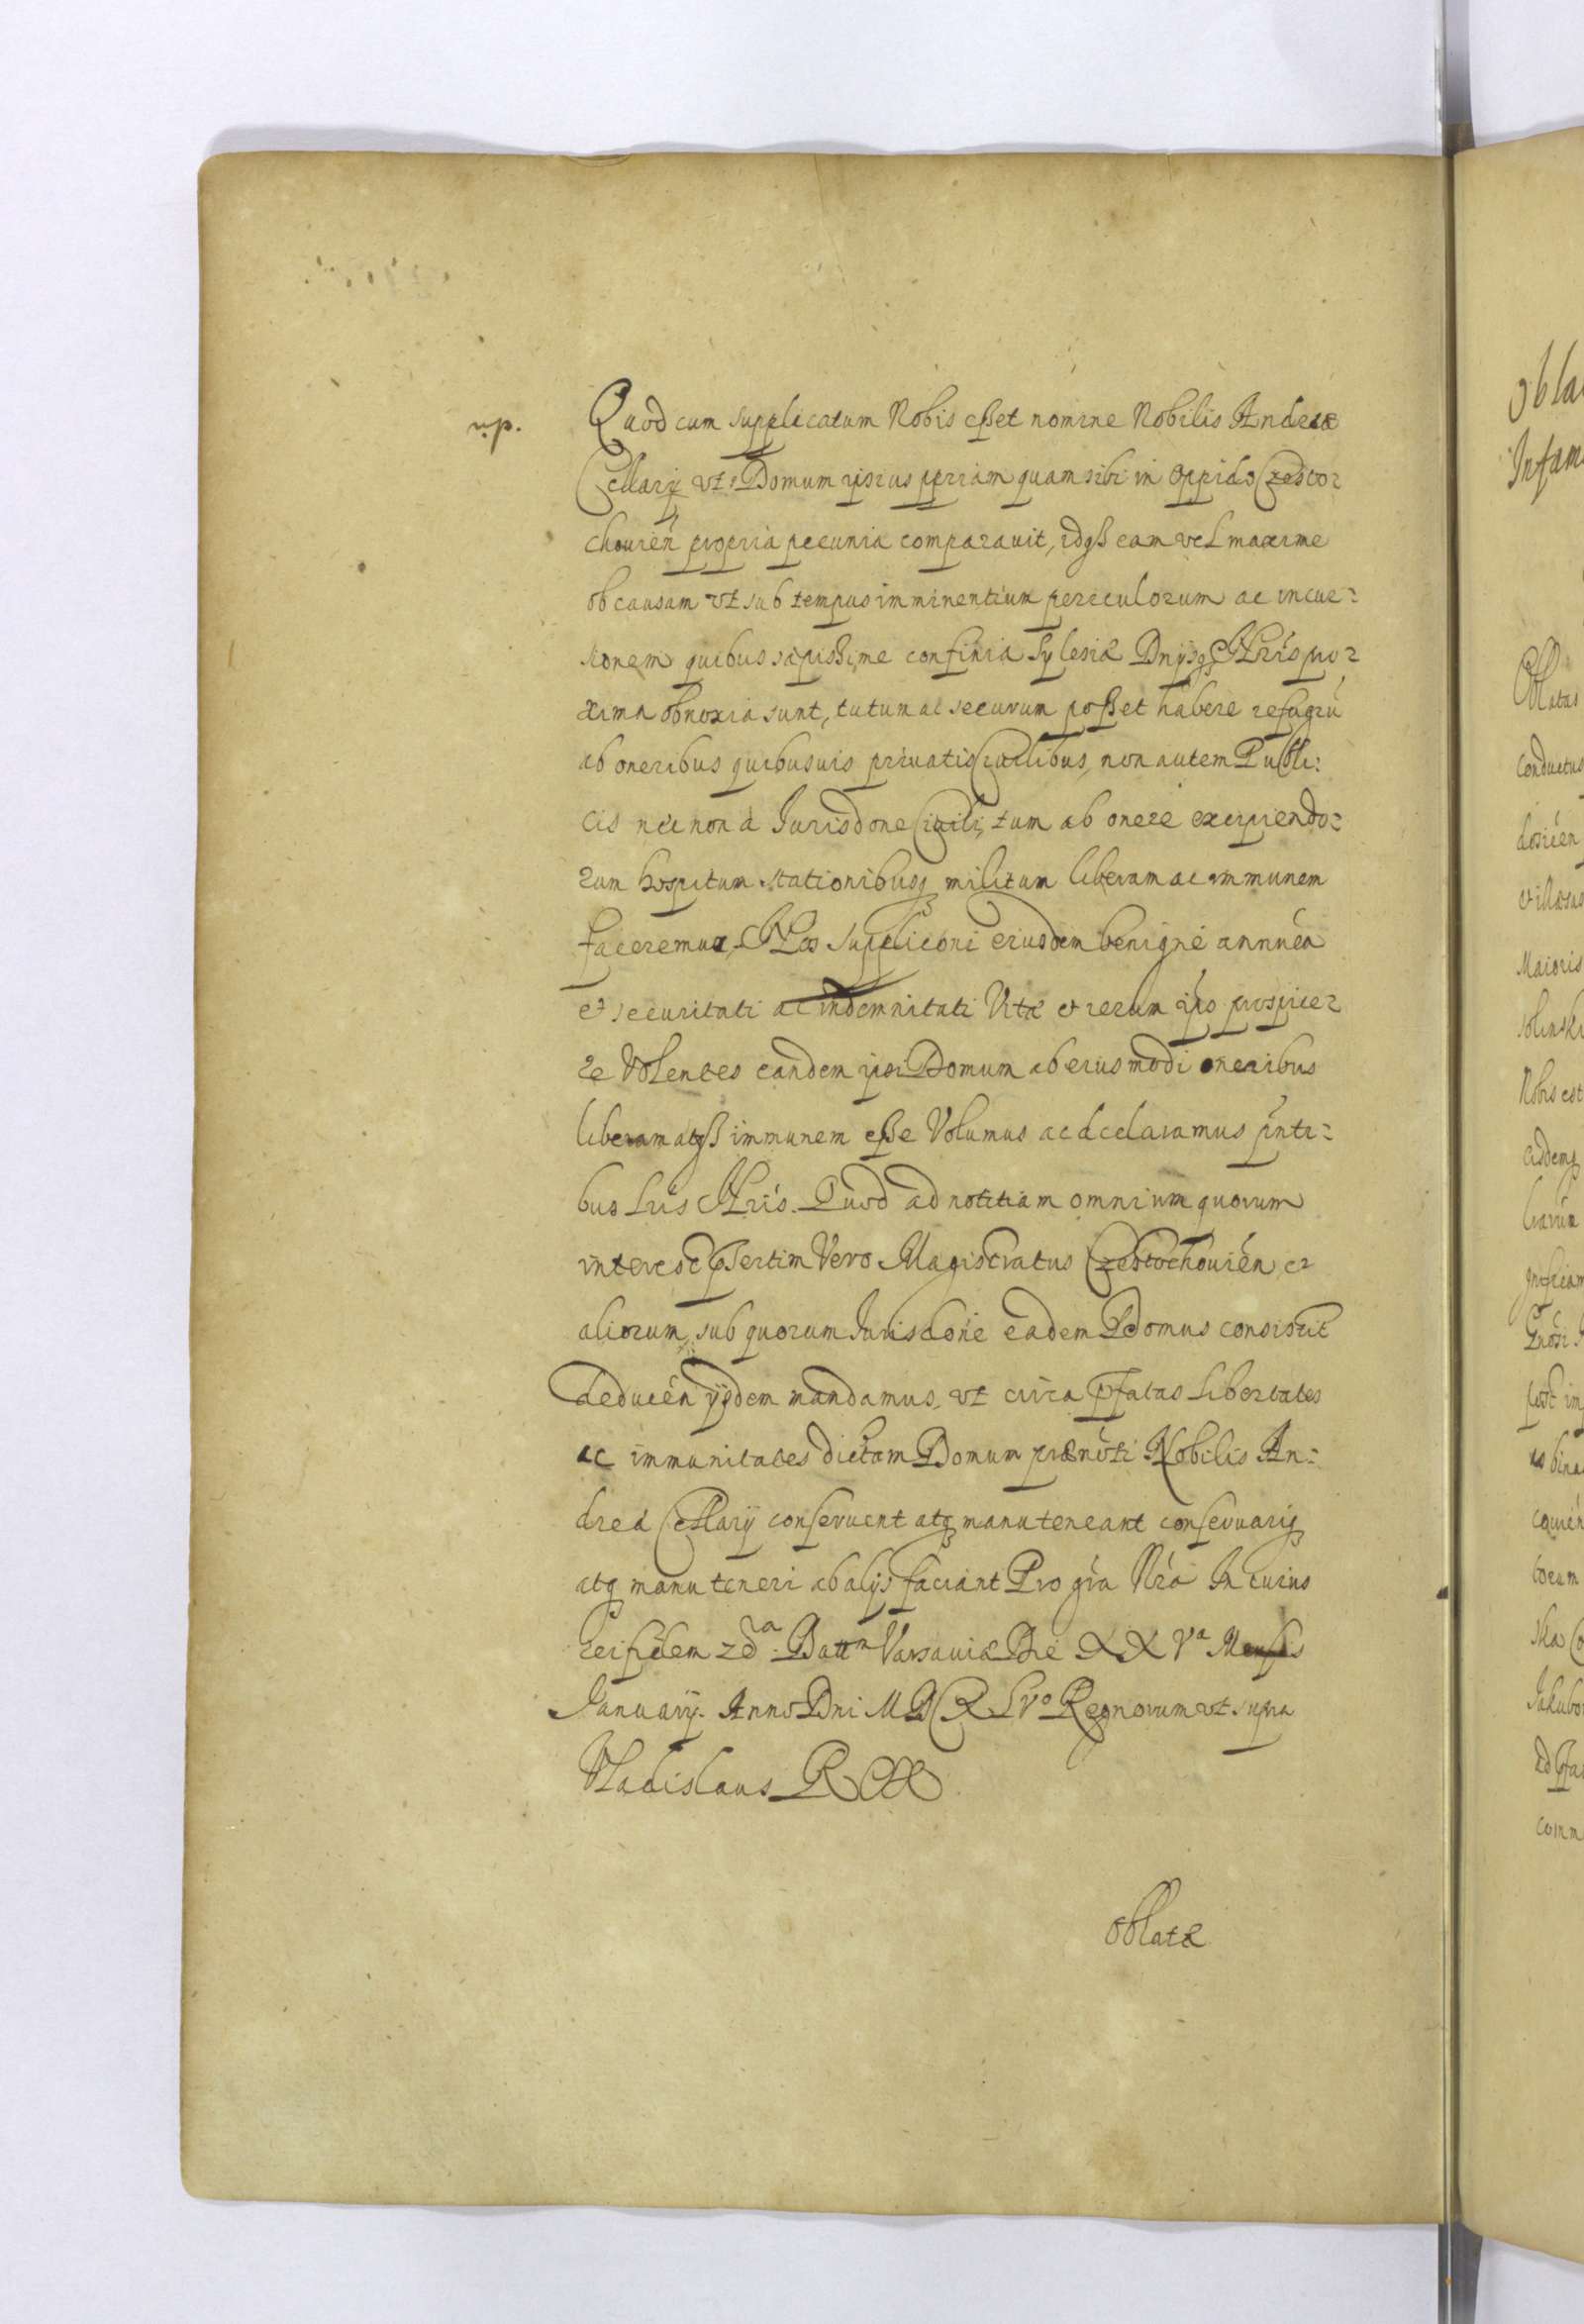 n.p.
Quod cum supplicatum Nobis esset nomine Nobilis Andreæ
Cellarij vt Domum ipsius ppriam quam sibi in Oppido Czesto=
chouień propria pecunia comparauit, idq3 eam vel maxime
ob causam vt sub tempus imminentium periculorum ac incur=
sionem quibus sæpissime confinia Sylesiæ Dnijsq3 Nrís pro=
xima obnoxia sunt, tutum ac securum posset habere refugiū
ab oneribus quibusuis priuatis Ciuilibus, non autem Publi:
cis nec non a Jurisdone Ciuili, tum ab onere excipiendo=
rum hospitum stationibusq3 militum liberam ac immunem
faceremus, Nos Supplicōni eiusdem benigne annueń
et securitati ac indemnitati Vitæ et rerum ips prospice=
re Volentes eandem ipsi Domum ab eiusmodi oneribus
liberam atq3 immunem esse Volumus ac declaramus pńti=
bus Lris Nrís. Quod ad notitiam omnium quorum
interest psertim Vero Magistratus Czestochouień et
aliorum sub quorum Jurisdońe eadem Domus consistit
deduceń ijsdem mandamus, vt circa pfatas Libertates
ac immunitates dictam Domum prænoti Nobilis An=
dreæ Cellarij conseruent atq3 manuteneant conseruariq3
atq3 manuteneri ab alijs faciant Pro gra Nrá In cuius
rei fidem &c̄a. Datt Varsauiæ Die XXVa Mensis
Januarij Anno Dni MDCXLVo Regnorum vt supra
Vladislaus REX
Oblatæ
Obla
Infam
Oblatas
conductus
dosień
et illæsus
Maioris
solinski
Nobis est
eidemq3
post im
Ska Co
Jakubo
comm